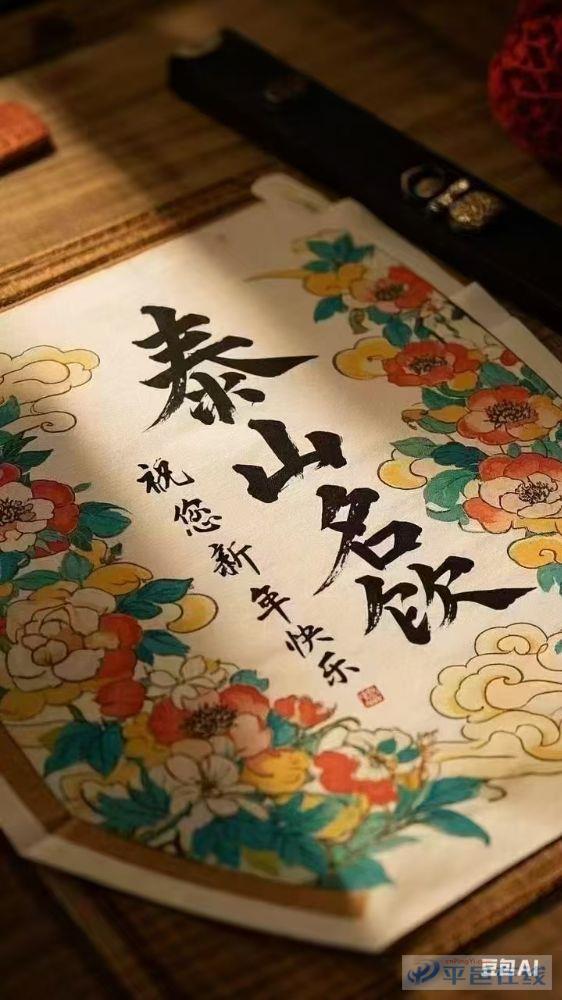 泰山名饮
祝您新年快乐
豆包AI
平邑在线